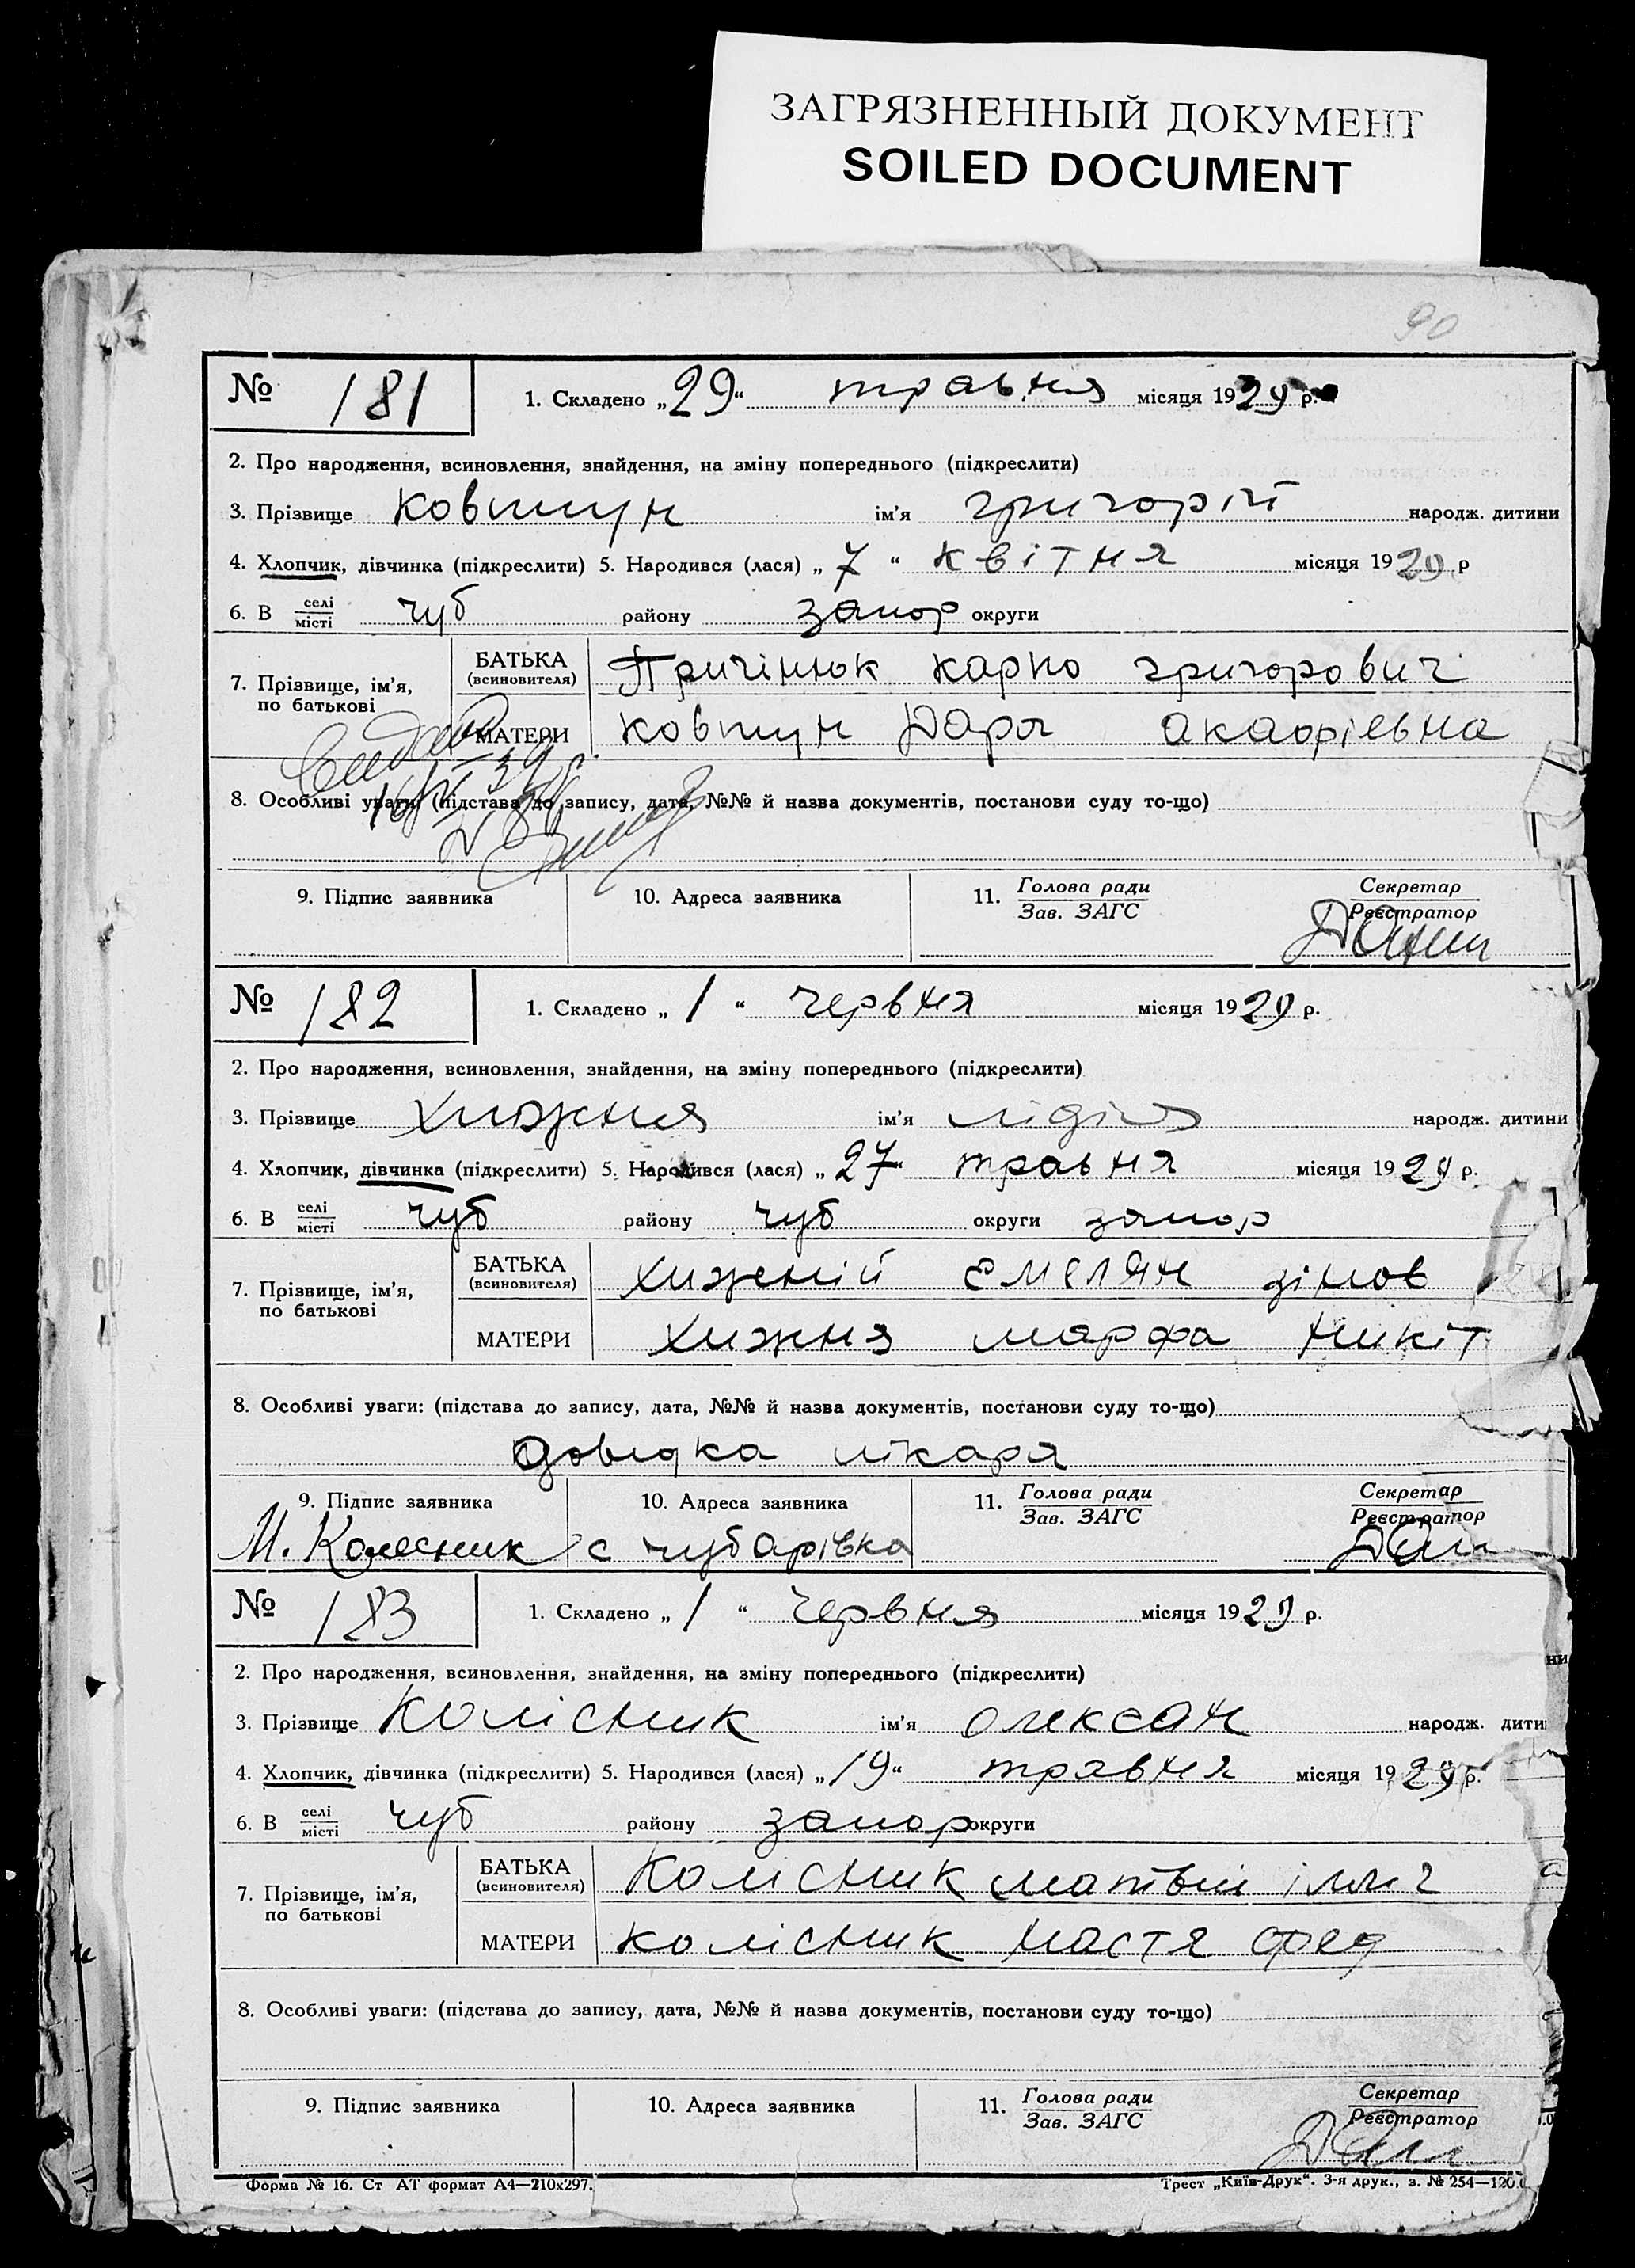 ЗАГРЯЗНЕННЫЙ ДОКУМЕНТ
SOILED DOCUMENT
90
№ 181 1. Складено „29“ травня місяця 1929 р.
2. Про народження, всиновлення, знайдення, на зміну попереднього (підкреслити)
3. Прізвище Ковтун ім'я григорій народж. дитини
4. Хлопчик, дівчинка (підкреслити) 5. Народився (лася) „7“ квітня місяця 1929 р
6. В селі/місті чуб району запор округи
7. Прізвище, ім'я, по батькові БАТЬКА (всиновителя) Причінюк карпо григорович
МАТЕРИ ковтун Даря
8. Особливі уваги: (підстава до запису, дата, №№ й назва документів, постанови суду то-що)
9. Підпис заявника 10. Адреса заявника 11. Голова ради/Зав. ЗАГС Секретар/Реєстратор
№ 182 1. Складено „1“ червня місяця 1929 р.
2. Про народження, всиновлення, знайдення, на зміну попереднього (підкреслити)
3. Прізвище Хижня ім'я лідія народж. дитини
4. Хлопчик, дівчинка (підкреслити) 5. Народився (лася) „27“ травня місяця 1929 р.
6. В селі/місті чуб району чуб округи запор
7. Прізвище, ім'я, по батькові БАТЬКА (всиновителя) хижній Емелян зінов
МАТЕРИ хижня марфа никіт
8. Особливі уваги: (підстава до запису, дата, №№ й назва документів, постанови суду то-що)
довідка лікаря
9. Підпис заявника 10. Адреса заявника 11. Голова ради/Зав. ЗАГС Секретар/Реєстратор
М. Колесник с чубарівка
№ 183 1. Складено „1“ червня місяця 1929 р.
2. Про народження, всиновлення, знайдення, на зміну попереднього (підкреслити)
3. Прізвище Колісник ім'я олексан народж. дити
4. Хлопчик, дівчинка (підкреслити) 5. Народився (лася) „19“ травня місяця 1929 р.
6. В селі/місті чуб району запор округи
7. Прізвище, ім'я, по батькові БАТЬКА (всиновителя) Колісник матвій
МАТЕРИ колісник Настя фед
8. Особливі уваги: (підстава до запису, дата, №№ й назва документів, постанови суду то-що)
9. Підпис заявника 10. Адреса заявника 11. Голова ради/Зав. ЗАГС Секретар/Реєстратор
Форма № 16. Ст АТ формат А4—210х297. Трест „Київ-Друк“. 3-я друк., з. № 254—120.0